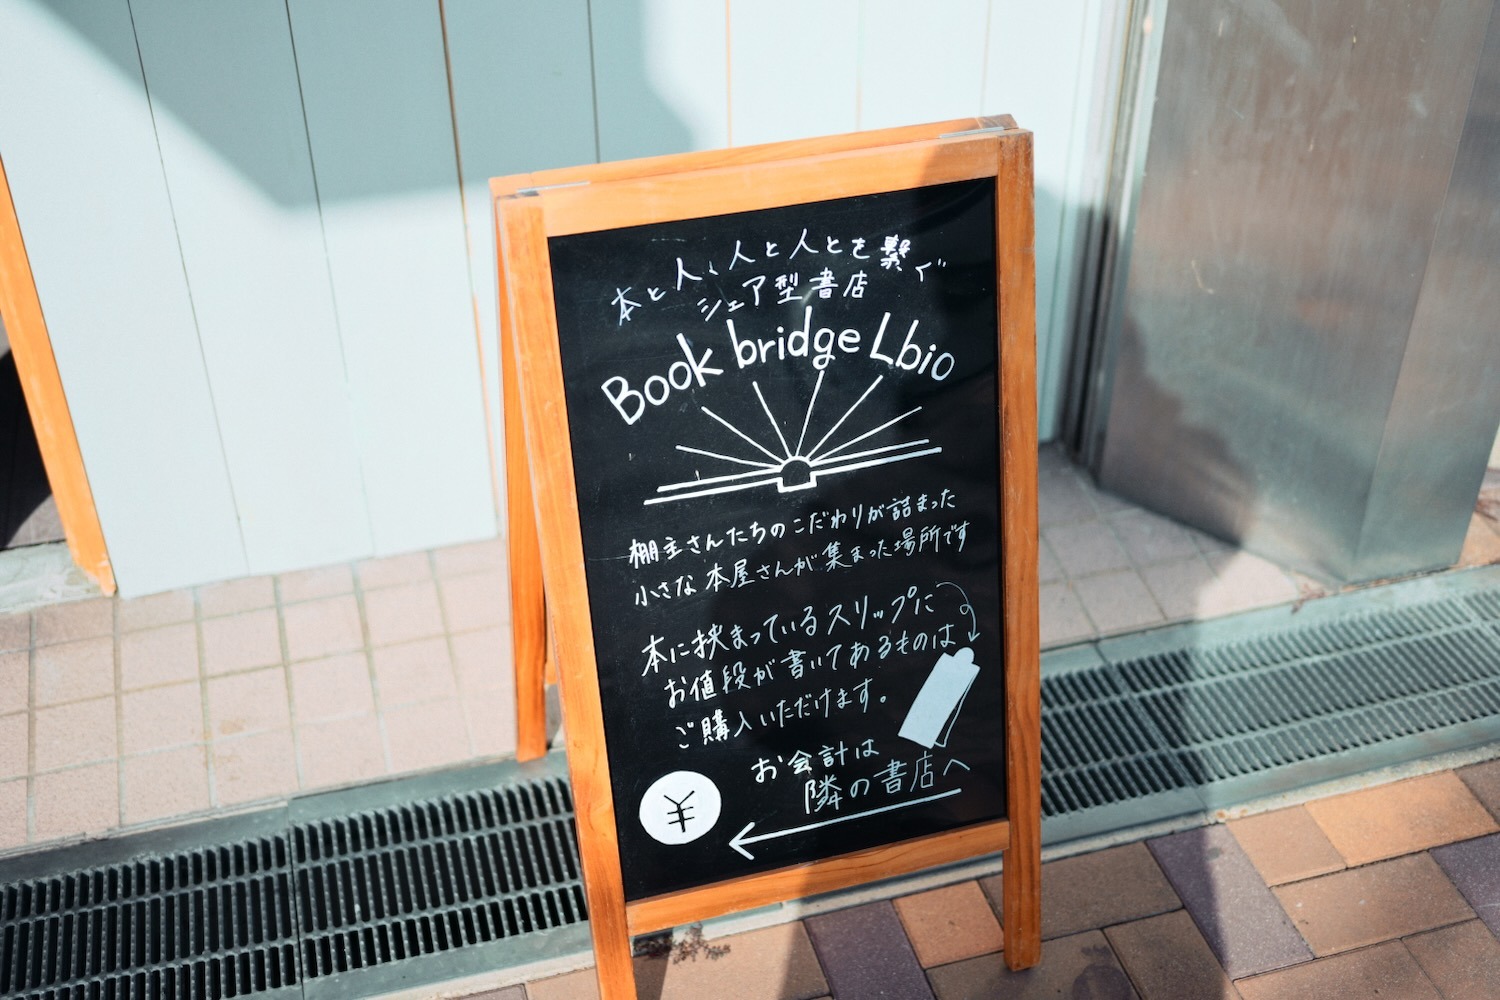 本と人、人と人とを繋ぐ
シェア型書店
Book bridge Lbio
棚主さんたちのこだわりが詰まった
小さな本屋さんが集まった場所です
本に挟まっているスリップに
お値段が書いてあるものは
ご購入いただけます。
お会計は
隣の書店へ
¥